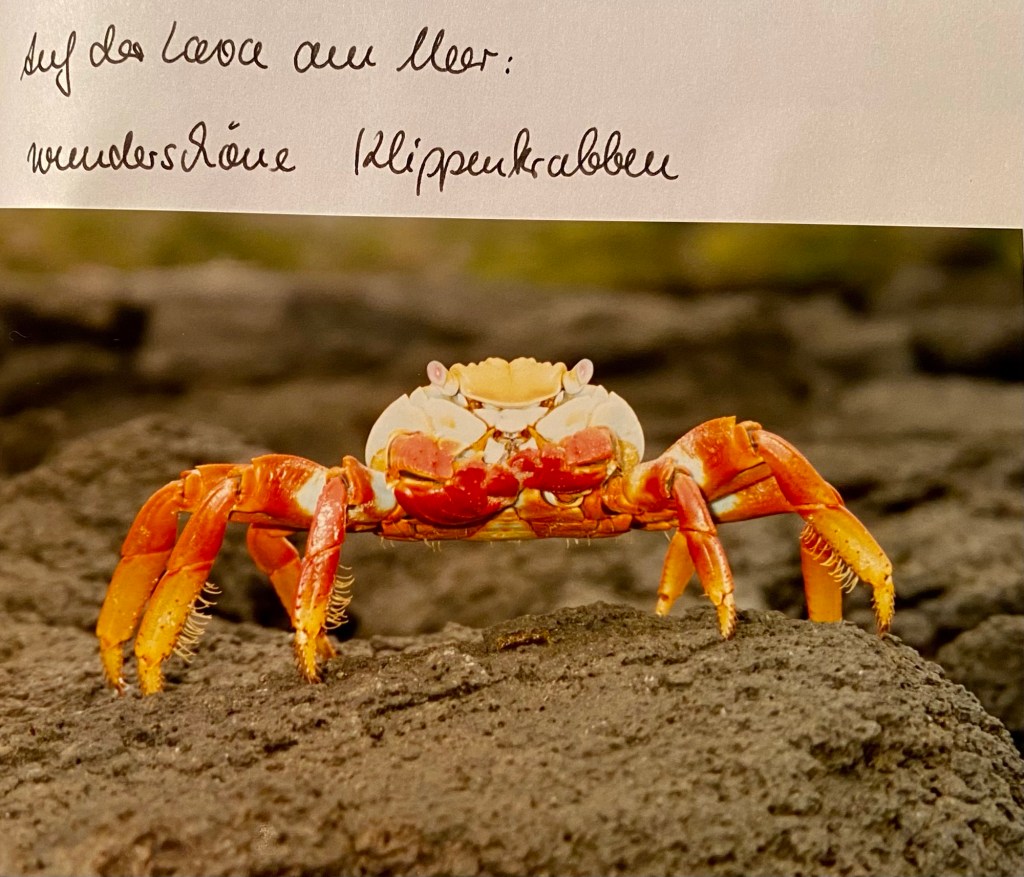 Auf der Lava am Meer:
wunderschöne Klippenkrabben